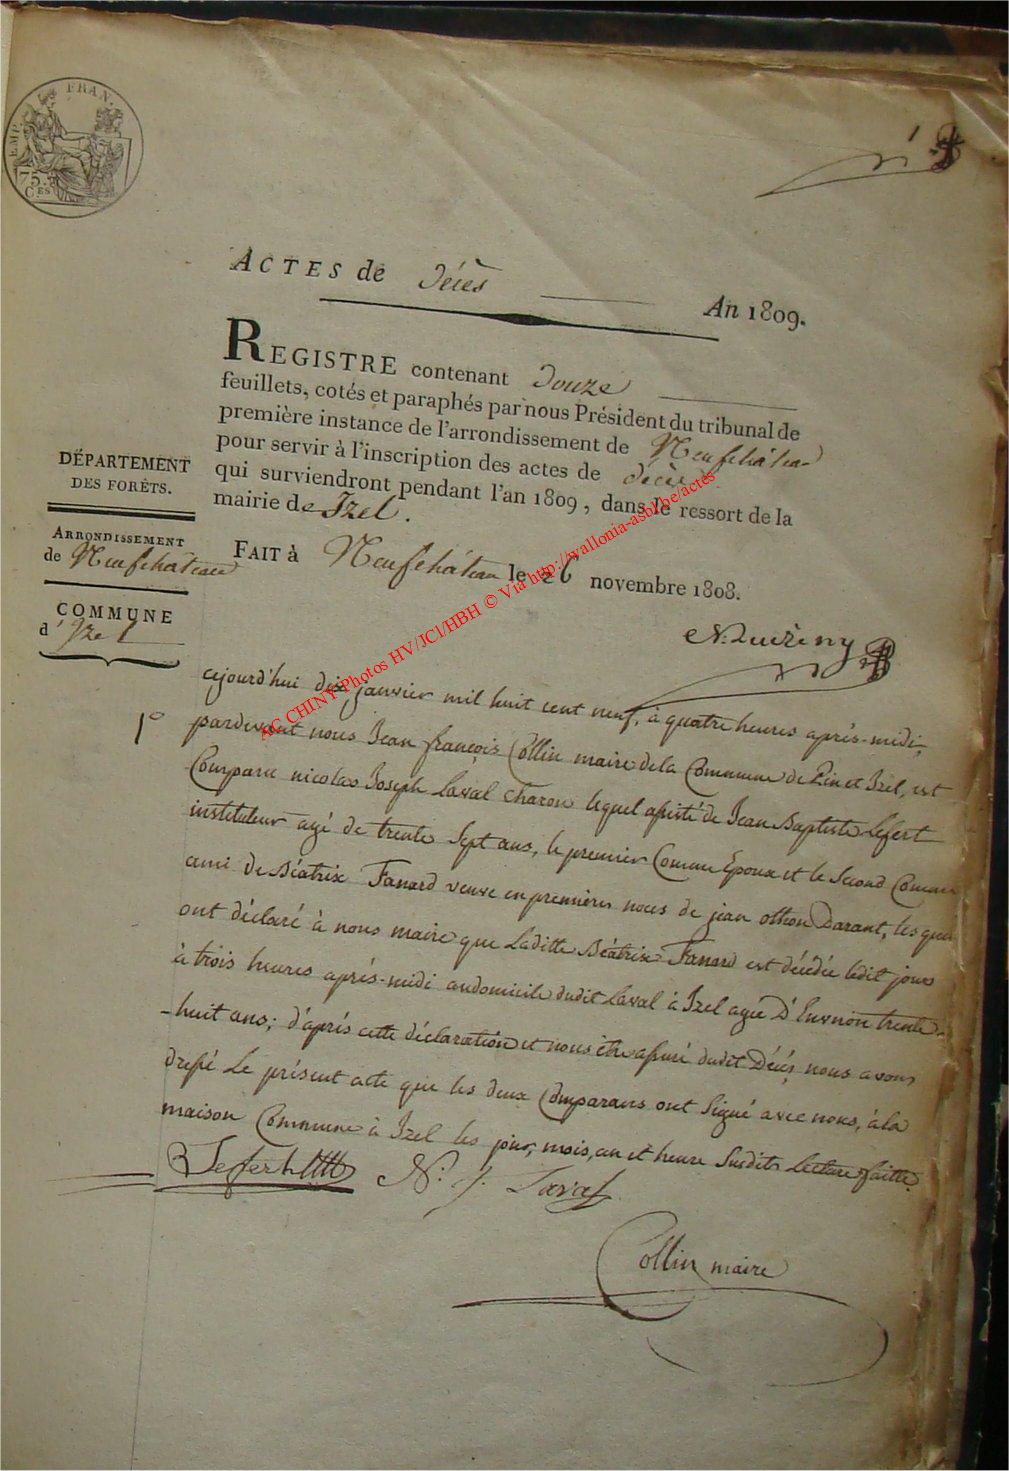 EMP. FRAN.
75.
C.ES
1
ACTES de décès An 1809.
REGISTRE contenant Douze
feuillets, cotés et paraphés par nous Président du tribunal de
première instance de l'arrondissement de Neufchâteau
pour servir à l'inscription des actes de décès
qui surviendront pendant l'an 1809, dans le ressort de la
mairie de Izel.
DÉPARTEMENT
DES FORÊTS.
ARRONDISSEMENT
de Neufchâteau
COMMUNE
d'Izel
FAIT à Neufchâteau le 26 novembre 1808.
AC CHINY Photos HV/JCl/HBH © Via http://wallonia-asbl.be/actes
1°
cejourd'hui dix janvier mil huit cent neuf, à quatre heures après-midi,
pardevant nous Jean françois Collin maire de la Commune de Pin et Izel, est
Comparu nicolas Joseph Laval charon lequel assisté de Jean Baptiste Lefert
instituteur agé de trente Sept ans, le premier Comme Epoux et le Second Comme
ami de Béatrix Fanard veuve en premières noces de jean othon Darant, les quels
ont déclaré à nous maire que Laditte Béatrix Fanard est décédée ledit jour
à trois heures après-midi audomicile dudit Laval à Izel agée D'Environ trente-
-huit ans; d'après cette déclaration et nous être assuré dudit Décés nous avons
dressé Le présent acte que les deux Comparans ont Signé avec nous, à la
maison Commune à Izel les jour, mois, an et heure Susdits Lecture faitte.
Lefert N: J. Laval
Collin maire